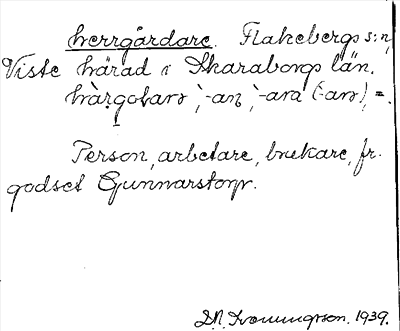 herrgårdare. Flakebergs s:n,
Viste härad i Skaraborgs län.
hàrgobarə, -an, -ara (-arə), =.
Person, arbetare, brukare, fr.
godset Gunnarstorp.
1939.